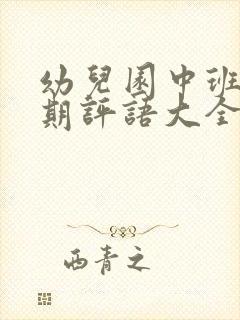 幼兒園中班
期評語大全
西青之